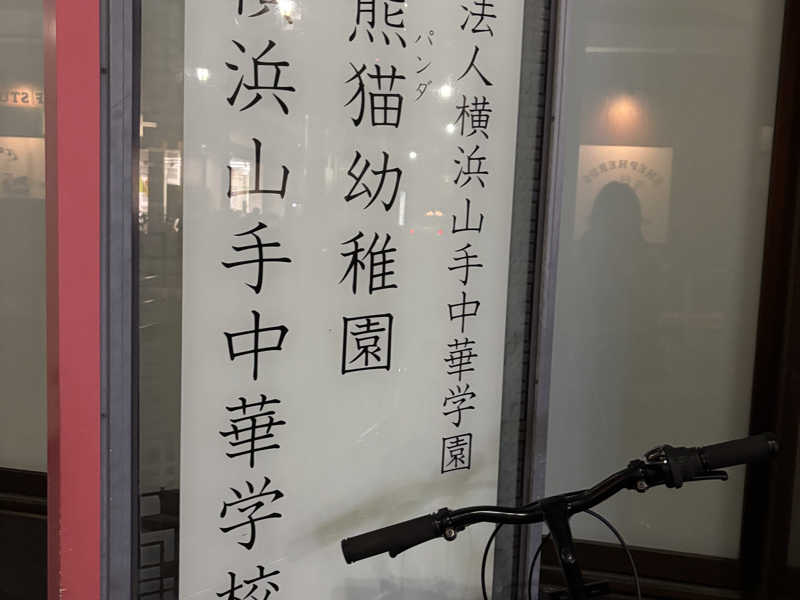 法人横浜山手中華学園
熊猫幼稚園
パンダ
横浜山手中華学校